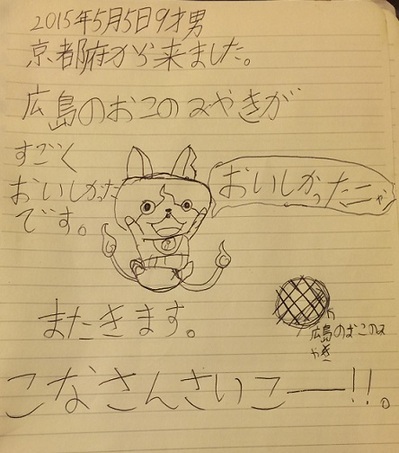 2015年5月5日9才男
京都府から来ました。
広島のおこのみやきが
すごく
おいしかった
です。
おいしかったニャ
またきます。
広島のおこのみ
やき
こなさんさいこー!!。